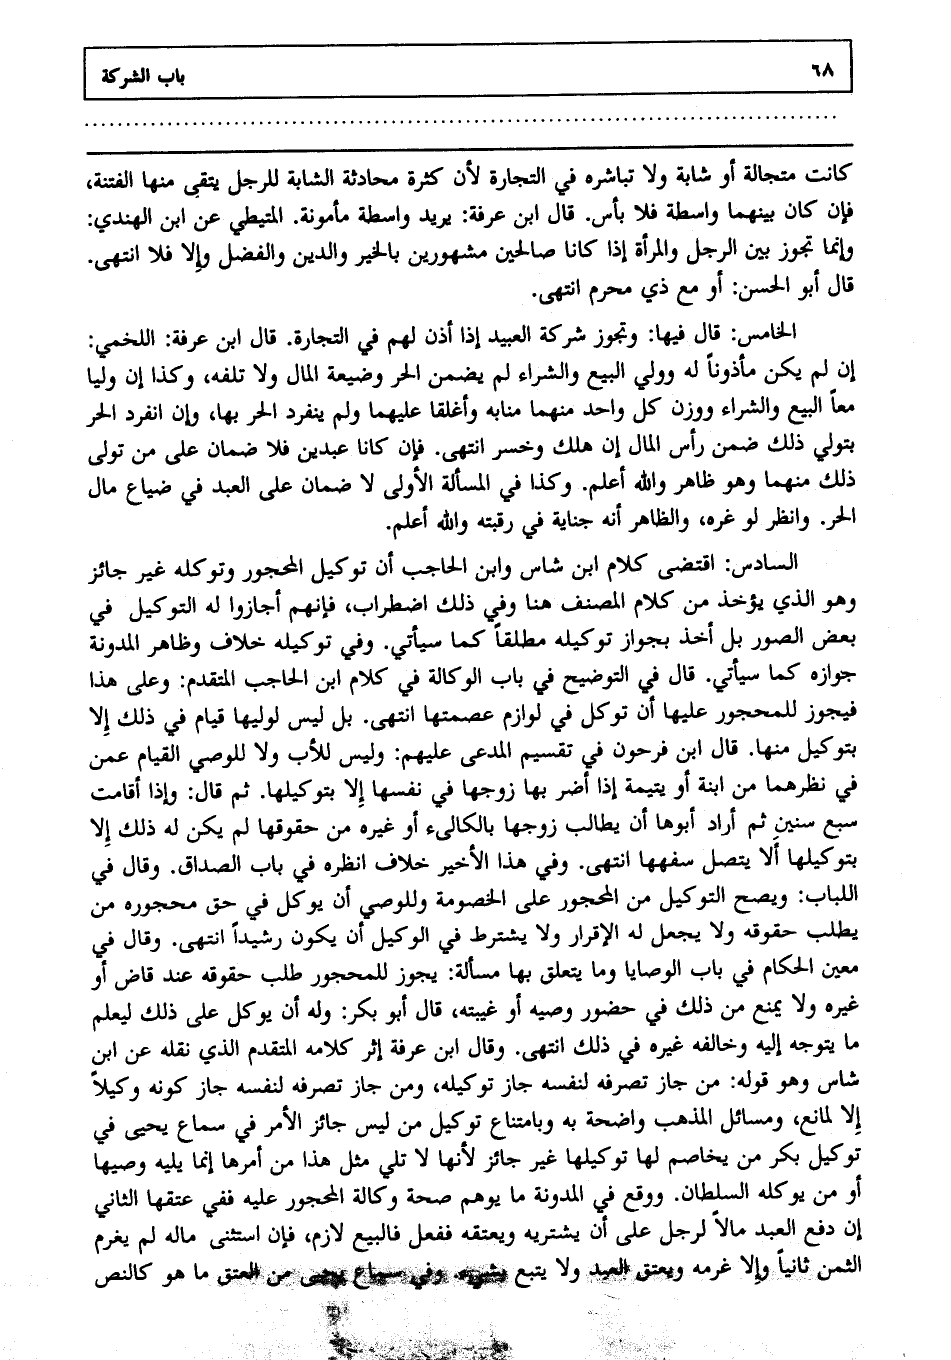 ٦٨
باب الشركة
كانت متجالة أو شابة ولا تباشره في التجارة لأن كثرة محادثة الشابة للرجل يتقى منها الفتنة،
فإن كان بينهما واسطة فلا بأس. قال ابن عرفة: يريد واسطة مأمونة. المتيطي عن ابن الهندي:
وإنما تجوز بين الرجل والمرأة إذا كانا صالحين مشهورين بالخير والدين والفضل وإلا فلا انتهى.
قال أبو الحسن: أو مع ذي محرم انتهى.
الخامس: قال فيها: وتجوز شركة العبيد إذا أذن لهم في التجارة. قال ابن عرفة: اللخمي:
إن لم يكن مأذوناً له وولي البيع والشراء لم يضمن الحر وضيعة المال ولا تلفه، وكذا إن وليا
معاً البيع والشراء ووزن كل واحد منهما منابه وأغلقا عليهما ولم ينفرد الحر بها، وإن انفرد الحر
بتولي ذلك ضمن رأس المال إن هلك وخسر انتهى. فإن كانا عبدين فلا ضمان على من تولى
ذلك منهما وهو ظاهر والله أعلم. وكذا في المسألة الأولى لا ضمان على العبد في ضياع مال
الحر. وانظر لو غره، والظاهر أنه جناية في رقبته والله أعلم.
السادس: اقتضى كلام ابن شاس وابن الحاجب أن توكيل المحجور وتوكله غير جائز
وهو الذي يؤخذ من كلام المصنف هنا وفي ذلك اضطراب، فإنهم أجازوا له التوكيل في
بعض الصور بل أخذ بجواز توكيله مطلقاً كما سيأتي. وفي توكيله خلاف وظاهر المدونة
جوازه كما سيأتي. قال في التوضيح في باب الوكالة في كلام ابن الحاجب المتقدم: وعلى هذا
فيجوز للمحجور عليها أن توكل في لوازم عصمتها انتهى. بل ليس لوليها قيام في ذلك إلا
بتوكيل منها. قال ابن فرحون في تقسيم المدعى عليهم: وليس للأب ولا للوصي القيام عمن
في نظرهما من ابنة أو يتيمة إذا أضر بها زوجها في نفسها إلا بتوكيلها. ثم قال: وإذا أقامت
سبع سنين ثم أراد أبوها أن يطالب زوجها بالكالىء أو غيره من حقوقها لم يكن له ذلك إلا
بتوكيلها ألا يتصل سفهها انتهى. وفي هذا الأخير خلاف انظره في باب الصداق. وقال في
اللباب: ويصح التوكيل من المحجور على الخصومة وللوصي أن يوكل في حق محجوره من
يطلب حقوقه ولا يجعل له الإقرار ولا يشترط في الوكيل أن يكون رشيداً انتهى. وقال في
معين الحكام في باب الوصايا وما يتعلق بها مسألة: يجوز للمحجور طلب حقوقه عند قاض أو
غيره ولا يمنع من ذلك في حضور وصيه أو غيبته، قال أبو بكر: وله أن يوكل على ذلك ليعلم
ما يتوجه إليه وخالفه غيره في ذلك انتهى. وقال ابن عرفة إثر كلامه المتقدم الذي نقله عن ابن
شاس وهو قوله: من جاز تصرفه لنفسه جاز توكيله، ومن جاز تصرفه لنفسه جاز كونه وكيلاً
إلا لمانع، ومسائل المذهب واضحة به وبامتناع توكيل من ليس جائز الأمر في سماع يحيى في
توكيل بكر من يخاصم لها توكيلها غير جائز لأنها لا تلي مثل هذا من أمرها إنما يليه وصيها
أو من يوكله السلطان. ووقع في المدونة ما يوهم صحة وكالة المحجور عليه ففي عتقها الثاني
إن دفع العبد مالاً لرجل على أن يشتريه ويعتقه ففعل فالبيع لازم، فإن استثنى ماله لم يغرم
الثمن ثانياً وإلا غرمه ويعتق العبد ولا يتبع بشيء. وفي سماع يحيى من العتق ما هو كالنص